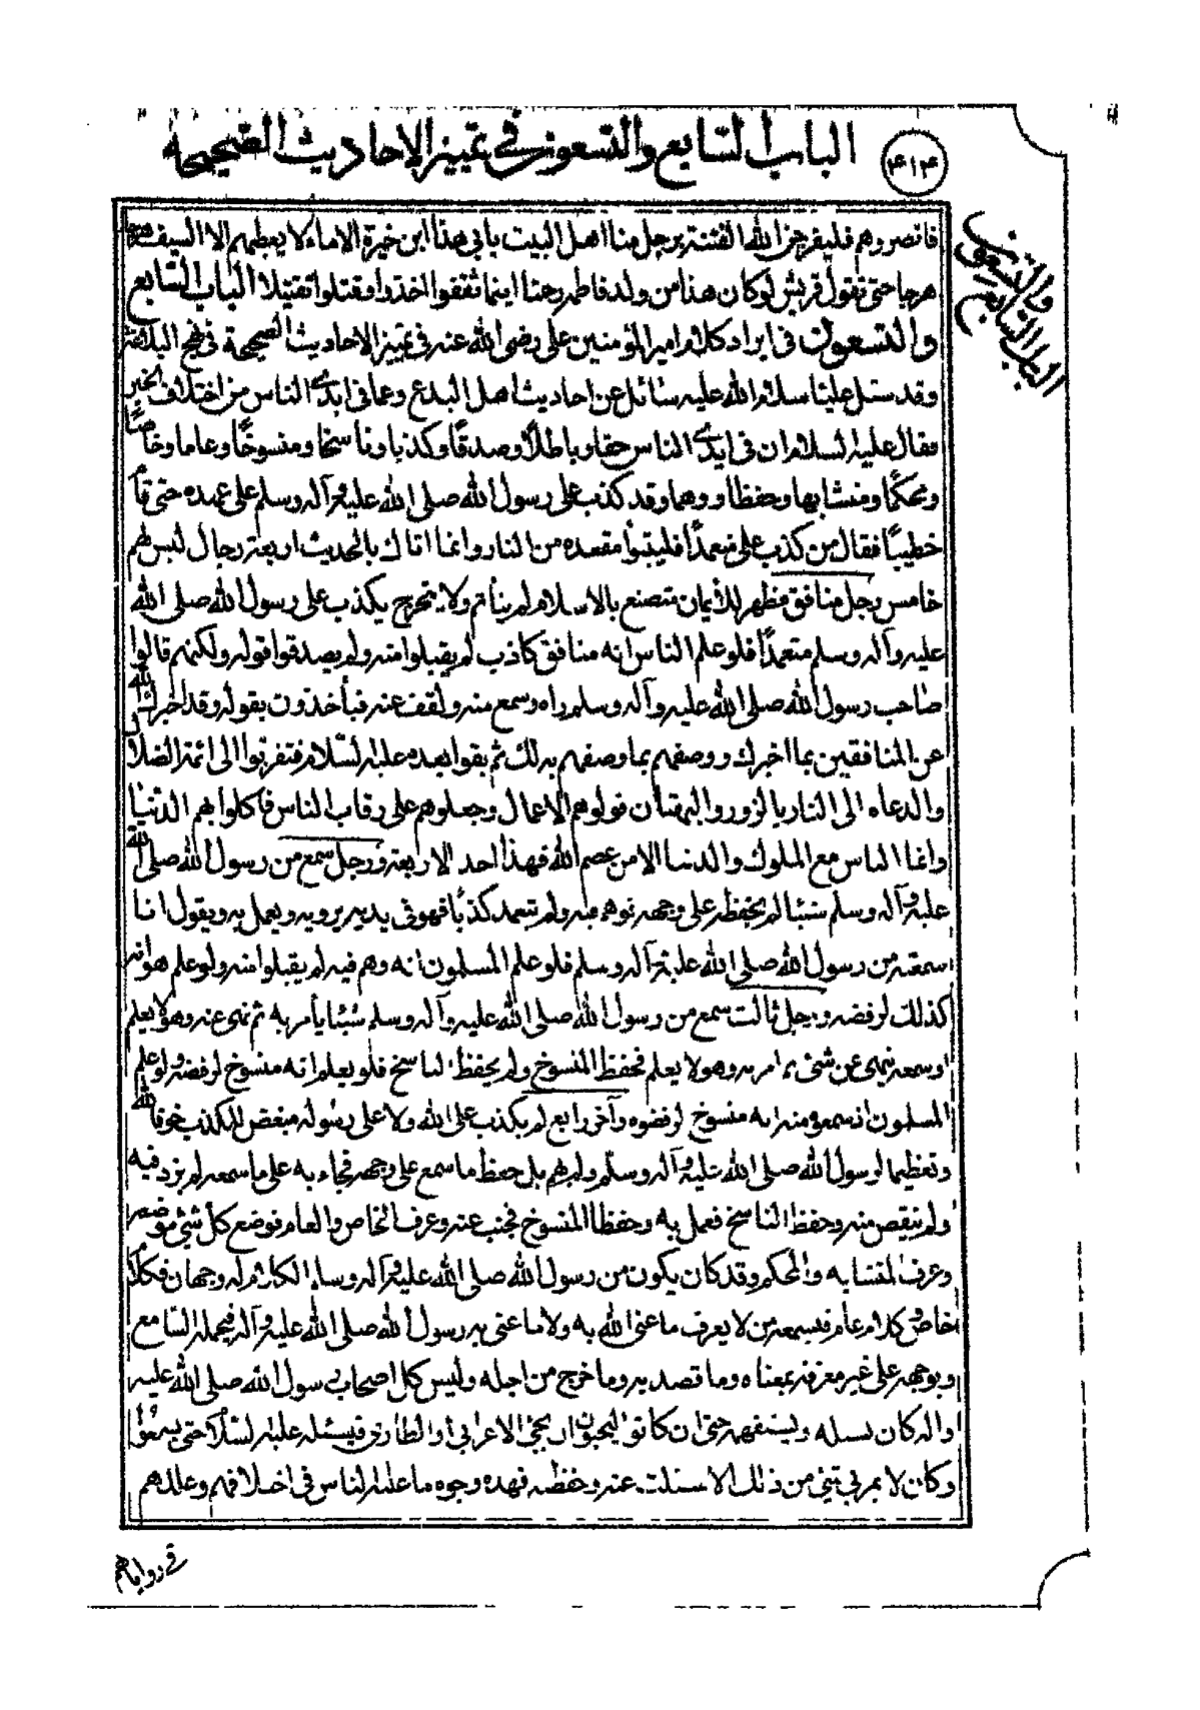 الباب السابع والتسعون في تمييز الاحاديث الصحيحة
٤١٤
الباب السابع والتسعون
فانصروهم فليفرجن الله الفتنة برجل منا اهل البيت بابي هذا ابن خيرة الاماء لا يعطيهم الا السيف هرجا
هرجا حتى تقول قريش لو كان هذا من ولد فاطمة رحمنا اينما ثقفوا اخذوا وقتلوا تقتيلا الباب السابع
والتسعون في ايراد كلام امير المؤمنين علي رضي الله عنه في تمييز الاحاديث الصحيحة في نهج البلاغة
وقد سئل علينا سلام الله عليه سائل عن احاديث اهل البدع وعما في ايدي الناس من اختلاف الخبر
فقال عليه السلام ان في ايدي الناس حقا وباطلاً وصدقًا وكذبا وناسخا ومنسوخًا وعاما وخاصًا
ومحكمًا ومتشابها وحفظا ووهما وقد كذب على رسول الله صلى الله عليه وآله وسلم على عهده حتى قام
خطيبًا فقال من كذب علي متعمدًا فليتبوأ مقعده من النار وانما اتاك بالحديث اربعة رجال ليس لهم
خامس رجل منافق مظهر للأيمان متصنع بالاسلام لم يتأثم ولا يتحرج يكذب على رسول الله صلى الله
عليه وآله وسلم متعمدًا فلو علم الناس انه منافق كاذب لم يقبلوا منه ولم يصدقوا قوله ولكنهم قالوا
صاحب رسول الله صلى الله عليه وآله وسلم راه وسمع منه ولقف عنه فيأخذون بقوله وقد اخبرك الله
عن المنافقين بما اخبرك ووصفهم بما وصفهم به لك ثم بقوا بعده عليه السلام فتقربوا الى ائمة الضلال
والدعاه الى النار بالزور والبهتان فولوهم الاعمال وجعلوهم على رقاب الناس فاكلوا بهم الدنيا
وانما الناس مع الملوك والدنيا الا من عصم الله فهذا احد الاربعة ورجل سمع من رسول الله صلى الله
عليه وآله وسلم شيئا لم يحفظه على وجهه توهم منه ولم يتعمد كذبًا فهو في يديه يرويه ويعمل به ويقول انا
سمعته من رسول الله صلى الله عليه وآله وسلم فلو علم المسلمون انه وهم فيه لم يقبلوا منه ولو علم هو انه
كذلك لرفضه ورجل ثالث سمع من رسول الله صلى الله عليه وآله وسلم شيئا يأمر به ثم نهى عنه وهو لا يعلم
او سمعه ينهى عن شئ ثم امر به وهو لا يعلم فحفظ المنسوخ ولم يحفظ الناسخ فلو يعلم انه منسوخ لرفضه ولو علم
المسلمون اذ سمعوه منه انه منسوخ لرفضوه وآخر رابع لم يكذب على الله ولا على رسوله مبغض للكذب خوفا لله
وتعظيما لرسول الله صلى الله عليه وآله وسلم ولم يهم بل حفظ ما سمع على وجهه فجاء به على ما سمعه لم يزد فيه
ولم ينقص منه وحفظ الناسخ فعمل به وحفظ المنسوخ فجنب عنه وعرف الخاص والعام فوضع كل شئ موضعه
وعرف المتشابه والمحكم وقد كان يكون من رسول الله صلى الله عليه وآله وسلم الكلام له وجهان فكلام
خاص وكلام عام فيسمعه من لا يعرف ما عنى الله به ولا ما عنى به رسول الله صلى الله عليه وآله فيحمله السامع
ويوجهه على غير معرفة بمعناه وما قصد به وما خرج من اجله وليس كل اصحاب رسول الله صلى الله عليه
واله كان يسله ويستفهمه حتى ان كانوا ليحبون ان يجئ الاعرابي او الطاري فيسئله عليه السلام حتى يسمعوا
وكان لا يمر بي شئ من ذلك الا سئلت عنه وحفظه فهذه وجوه ما عليه الناس في اختلافهم وعللهم
في رواياتهم